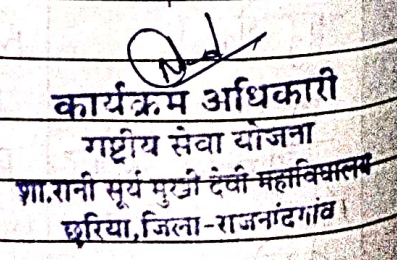 कार्यक्रम अधिकारी
राष्ट्रीय सेवा योजना
शा.रानी सूर्य मुखी देवी महाविद्यालय
छुरिया, जिला-राजनांदगांव